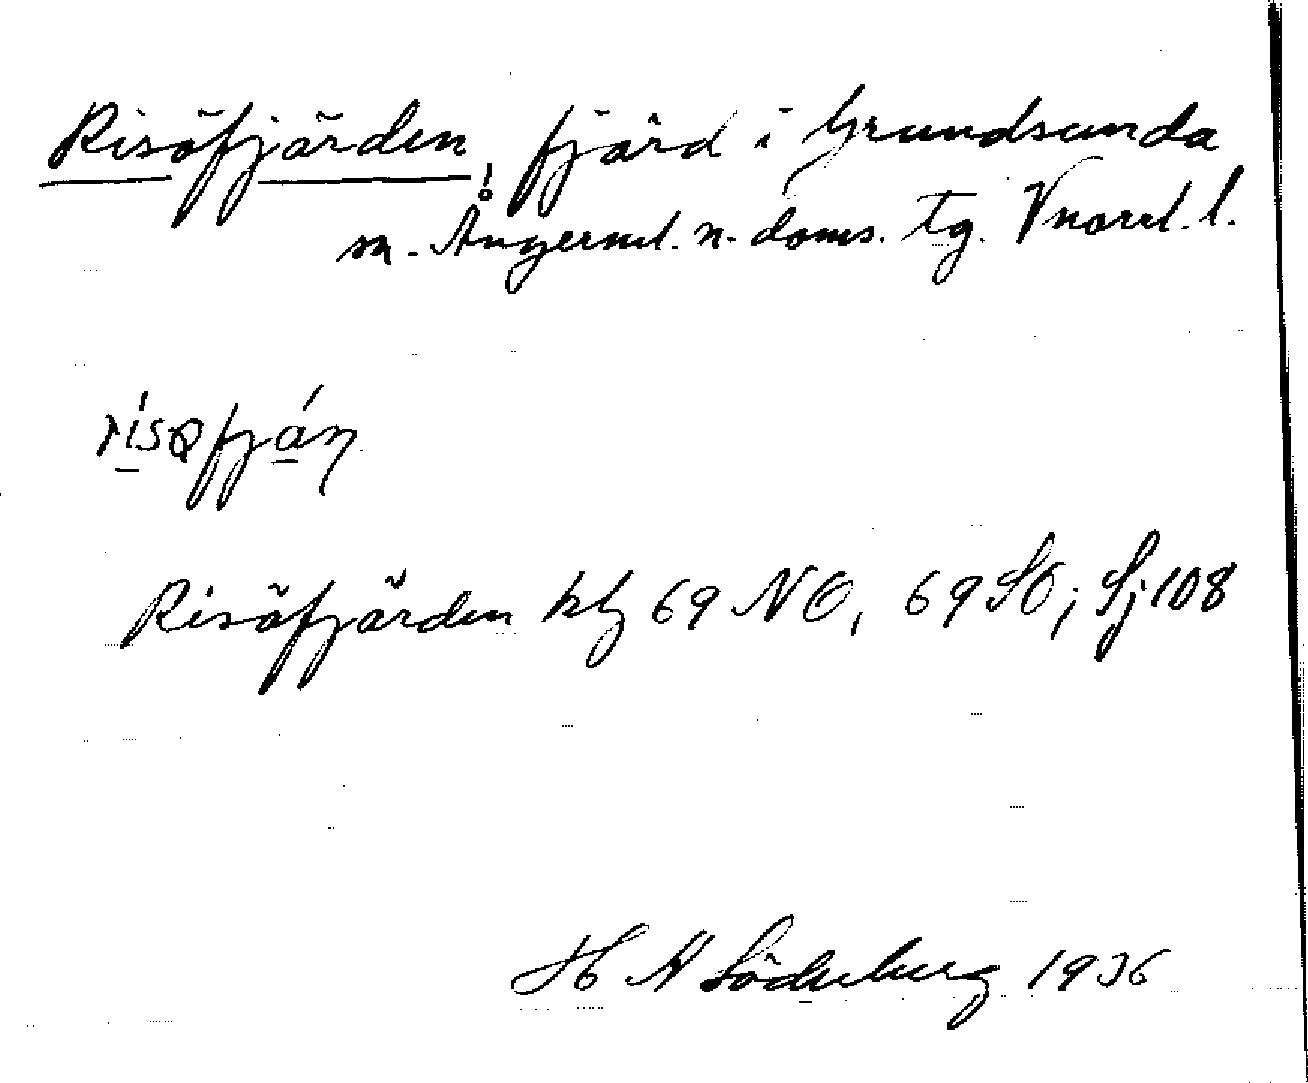 Risöfjärden, fjärd i Grundsunda
sn. Ångerml. n. doms. tg. Vnorrl. l.
Risöfjärden kbl 69 NO, 69 SO; Sj 108
H A Söderberg 1936